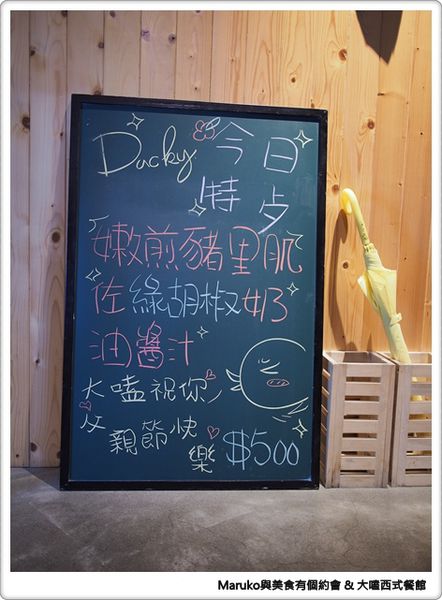 Ducky 今日
特夕
嫩煎豬里肌
佐綠胡椒奶
油醬汁
大嗑祝你
父親節快
樂 $500
Maruko與美食有個約會 & 大嗑西式餐館